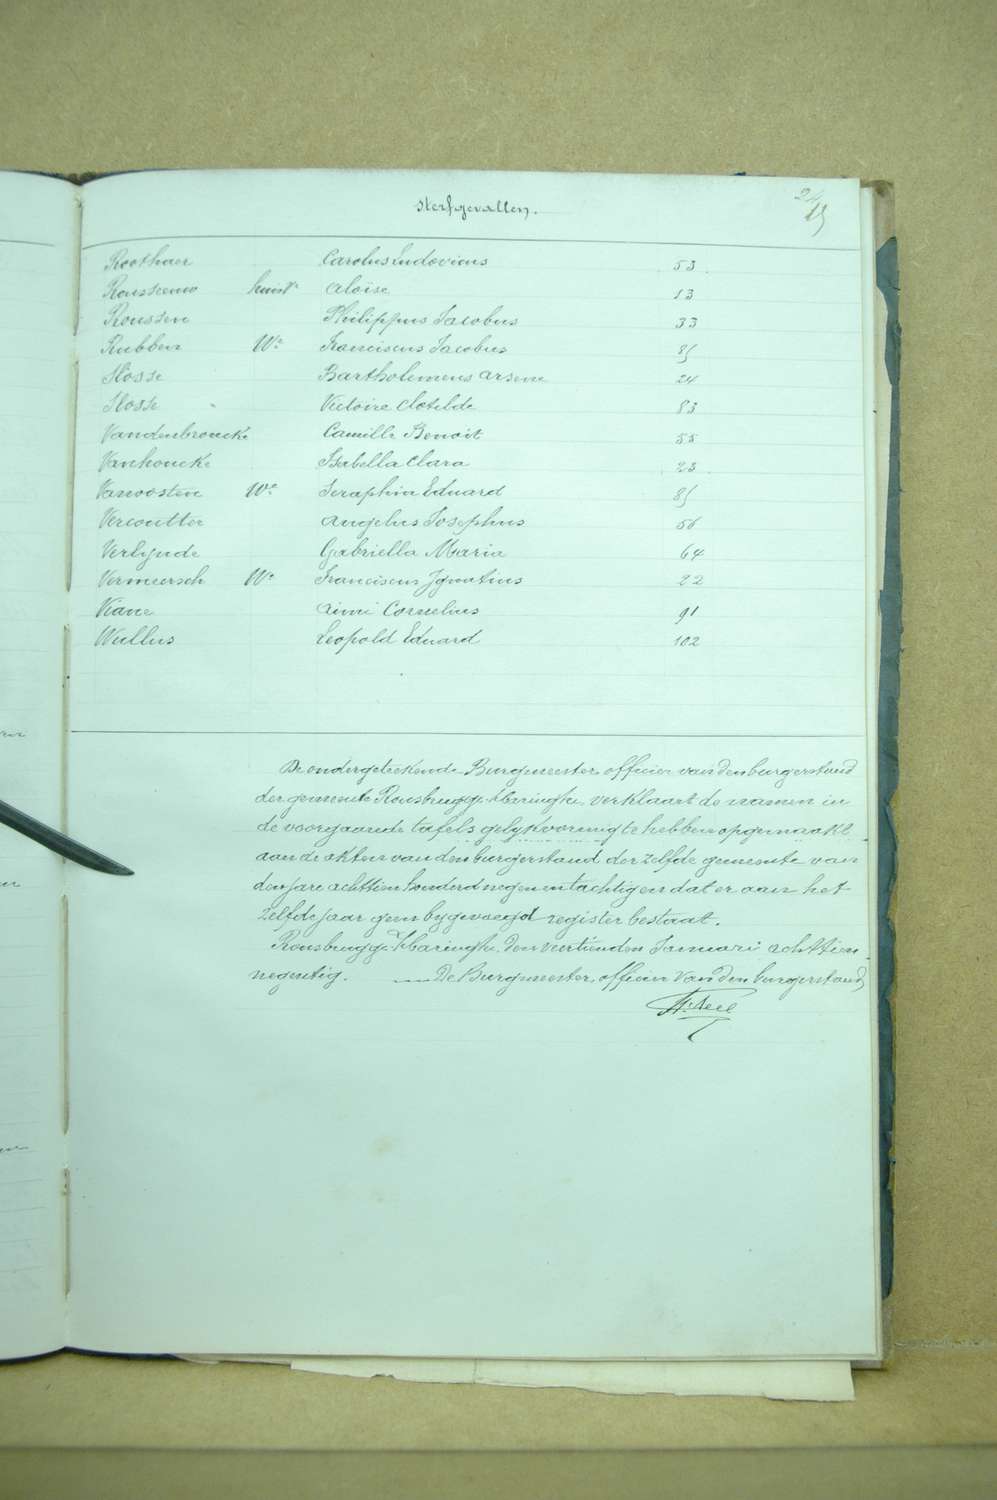 24
Sterfgevallen.
Roothaer Carolus Ludovicus 53
Rousseeuw Aloïse 13
Roussen Philippus Jacobus 33
Rubben We Franciscus Jacobus 85
Slosse Bartholemeus Arsene 24
Slosse Victoire Clotilde 83
Vandenbroucke Camille Benoit 55
Vanhoucke Isabella Clara 23
Vanoosten We Seraphin Eduard 85
Vercoutter Angelus Josephus 56
Verlynde Gabriella Maria 64
Vermeersch We Franciscus Ignatius 22
Viane Aimé Cornelius 91
Wullus Leopold Eduard 102
De ondergeteekende Burgmeester officier van den burgerstand
der gemeente Rousbrugge-Haringhe, verklaart de namen in
de voorgaande tafels gelykvormig te hebben opgemaakt
aan de akten van den burgerstand der zelfde gemeente van
den jare achttien honderd negen en tachtig en dat er aan het
zelfde jaar geen bygevoegd register bestaat.
Rousbrugge-Haringhe, den veertienden Januari achttien
negentig. De Burgmeester, officier van den burgerstand,